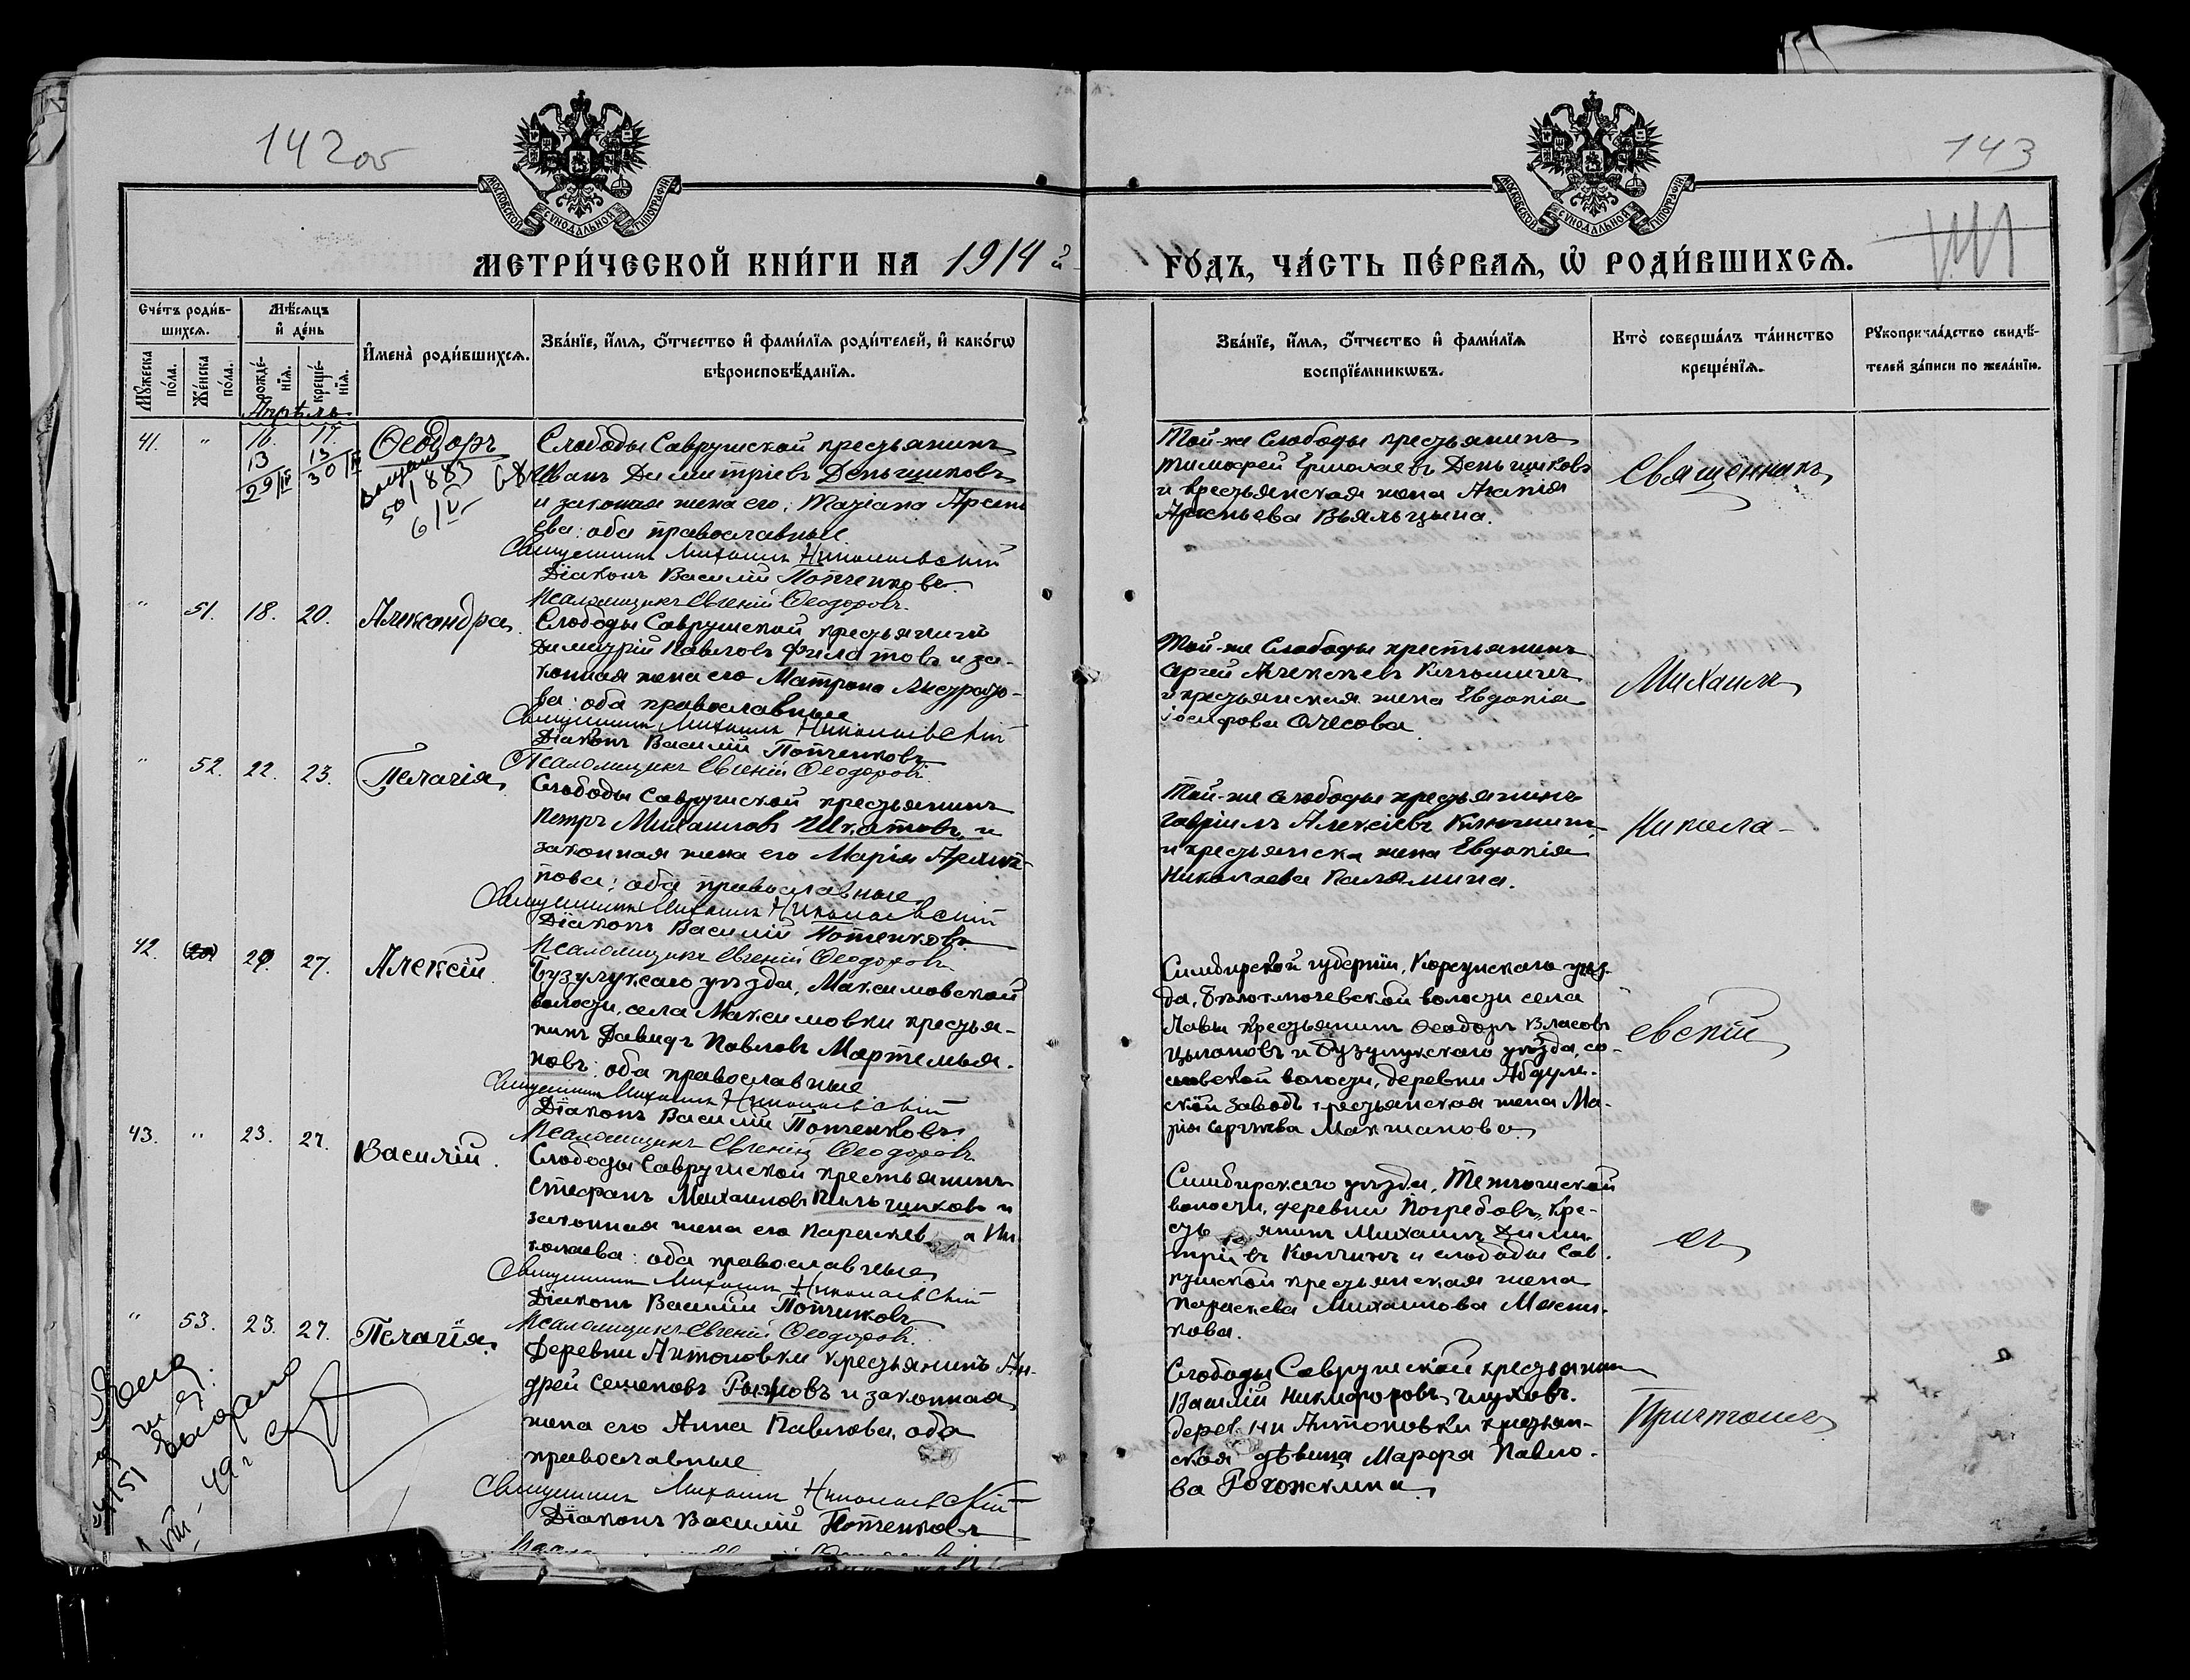 142об
143
МОСКОВСКОЙ СѴНОДАЛЬНОЙ ТИПОГРАФІИ
МОСКОВСКОЙ СѴНОДАЛЬНОЙ ТИПОГРАФІИ
МЕТРИ́ЧЕСКОЙ КНИ́ГИ НА 1914 й
ГО́ДЪ, ЧА́СТЬ ПЕ́РВАѦ, Ѡ҆ РОДИ́ВШИХСѦ.
Сче́тъ роди́в-
шихсѧ.
Мꙋ́жеска по́ла.
Же́нска по́ла.
Мѣ́сѧцъ
и҆ де́нь
рожде́-
нїѧ.
креще́-
нїѧ.
И҆мена̀ роди́вшихсѧ.
Зва́нїе, и҆́мѧ, ѻ҆́тчество и҆ фами́лїѧ роди́телей, и҆ како́гѡ
вѣроисповѣ́данїѧ.
Зва́нїе, и҆́мѧ, ѻ҆́тчество и҆ фами́лїѧ
воспрїе́мникѡвъ.
Кто̀ соверша́лъ та́инство
креще́нїѧ.
Рꙋкоприкла́дство свидѣ́-
телей за́писи по жела́нїю.
Апрѣль
41. " 16. 17. Ѳеодоръ
13 13
29/IV 30/IV
501883
6/V
Слободы Саврушской крестьянинъ
Иванъ Димитріевъ Деньщиковъ
и законная жена его: Татіана Арсень
ева: оба православные
Священникъ Михаилъ Николаевскій
Діаконъ Василій Потченковъ
Псаломщикъ Евгеній Ѳеодоровъ.
Той-же Слободы крестьянинъ
Тимофей Ермолаевъ Деньщиковъ
и крестьянская жена Агапія
Арсеньева Вьяльцына.
Священникъ
" 51. 18. 20. Александра.
Слободы Саврушской крестьянинъ
Димитрій Павловъ Филатовъ и за-
конная жена его Матрона
ва: оба православные
Священникъ Михаилъ Николаевскій
Діаконъ Василій Потченковъ
Псаломщикъ Евгеній Ѳеодоровъ.
Той-же Слободы крестьянинъ
Сергей Алексеевъ
и крестьянская жена Евдокія
Іосифова
Михаилъ
" 52. 22. 23. Пелагія.
Слободы Саврушской крестьянинъ
Петръ Михаиловъ и
законная жена его Марія
пова: оба православные.
Священникъ Михаилъ Николаевскій
Діаконъ Василій Потченковъ
Псаломщикъ Евгеній Ѳеодоровъ
Той-же слободы крестьянинъ
Гавріилъ Алексіевъ
и крестьянска жена Евдокія
Николаева
Никола-
42. 27. Алексій
Бузулукскаго уѣзда, Максимовской
волости, села Максимовки крестья-
нинъ Давидъ Павловъ Мартемья-
новъ: оба православные
Священникъ Михаилъ Николаевскій
Діаконъ Василій Потченковъ
Псаломщикъ Евгеній Ѳеодоровъ
Симбирской губерніи, Корсунскаго уѣз-
да, волости села
Лавы крестьянинъ Ѳеодоръ Власовъ
Цыгановъ и Бузулукскаго уѣзда,
волости, деревни Абдуль-
скій заводъ крестьянская жена Ма-
рія Сергѣева
евскій
43. " 23. 27. Василій.
Слободы Саврушской крестьянинъ
Стефанъ Михаиловъ Пильщиковъ и
законная жена его Параскева Ни-
колаева: оба православные
Священникъ Михаилъ Николаевскій
Діаконъ Василій Потченковъ
Псаломщикъ Евгеній Ѳеодоровъ.
Симбирскаго уѣзда,
волости, деревни Погребовъ, кре-
стьянинъ Михаилъ Дими-
тріевъ и слободы Сав-
рушской крестьянская жена
Параскева Михаилова
кова.
съ
" 53. 23. 27. Пелагія.
Деревни Антоновки крестьянинъ Ан-
дрей Семеновъ Рыжовъ и законная
жена его Анна Павлова, оба
православные
Священникъ Михаилъ Николаевскій
Діаконъ Василій Потченковъ
Слободы Саврушской крестьянинъ
Василій Никифоровъ Глуховъ.
деревни Антоновки крестьян-
ская дѣвица Марфа Павло-
ва Рогожкина
Причтомъ